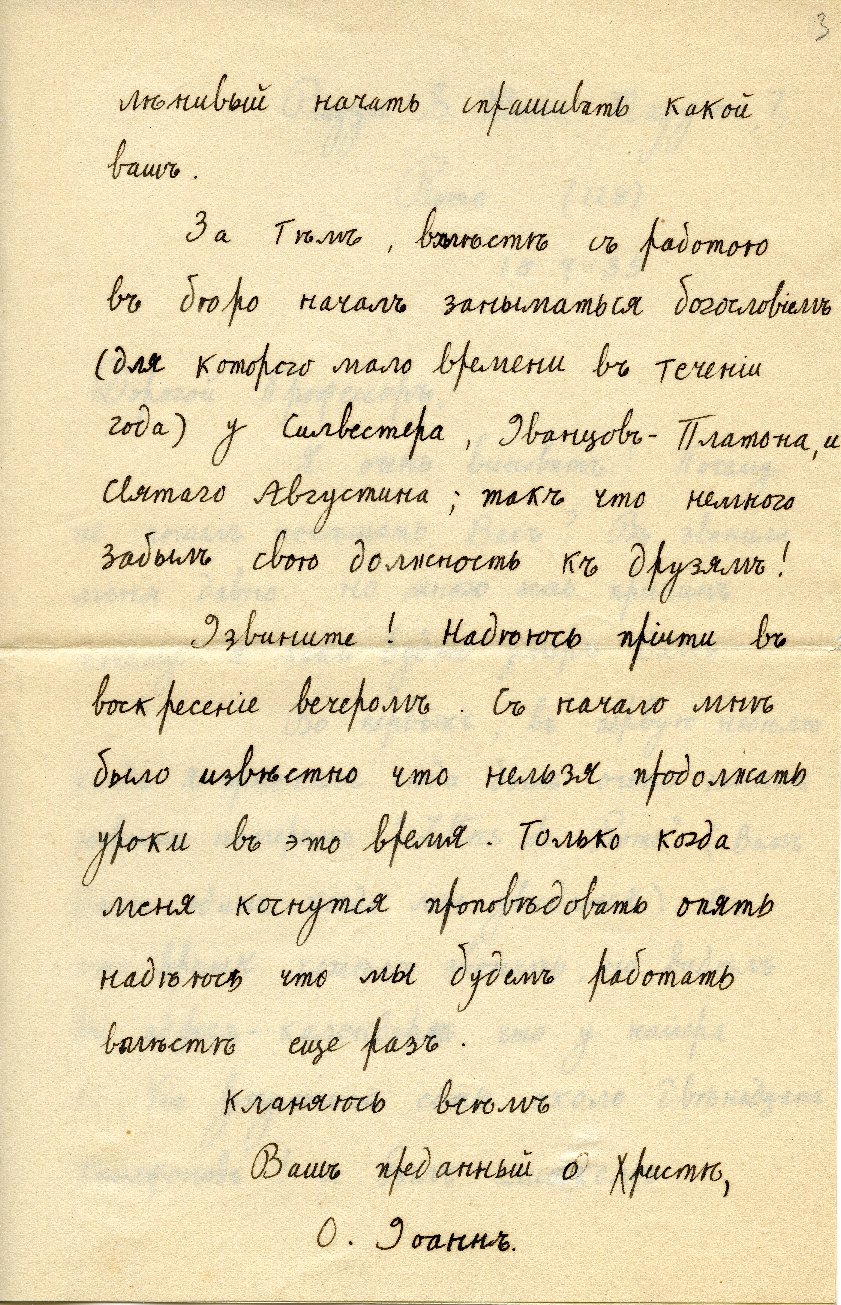 3
лѣнивый начать спрашивать какой
вашъ.
За тѣмъ, вмѣстѣ съ работою
въ бюро началъ заныматься богословіемъ
(для которого мало времени въ теченіи
года) у Силвестера, Иванцовъ-Платона, и
Святаго Августина; такъ что немного
забылъ свою должность къ друзямъ!
Извините! Надѣюсь прійти въ
воскресеніе вечеромъ. Съ начало мнѣ
было извѣстно что нельзя продолжать
уроки въ это время. Только когда
меня коснутся проповѣдовать опять
надѣюсь что мы будемъ работать
вмѣстѣ еще разъ.
Кланяюсь всѣмъ
Вашъ преданный о Христѣ,
О. Іоаннъ.